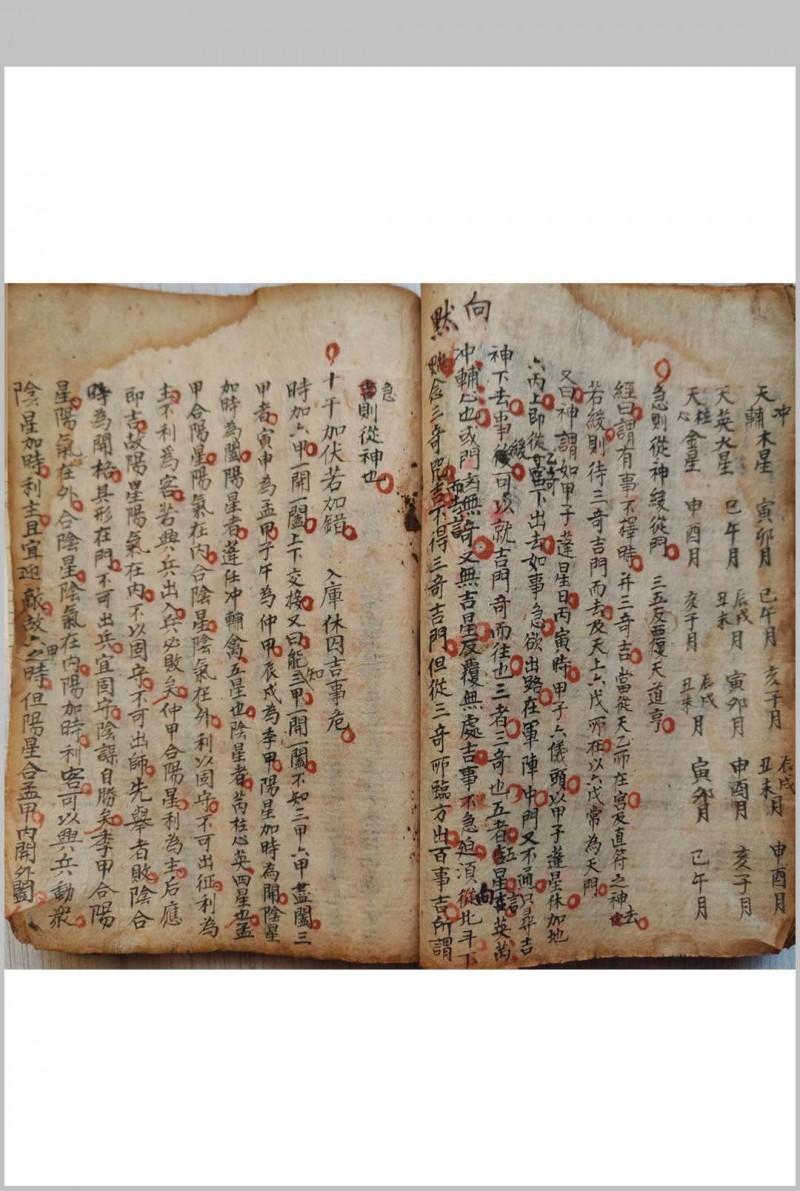 天冲輔木星 寅卯月 巳午月 亥子月 辰戌丑未月 申酉月
天英火星 巳午月 辰戌丑未月 寅卯月 申酉月 亥子月
天柱心金星 申酉月 亥子月 辰戌丑未月 寅卯月 巳午月
急則從神緩從門 三五反覆天道亨
經曰謂有事不擇時并三奇吉當從天乙所在宮及直符之神去
若緩則待三奇吉門而去及天上六戊所在以六戊常為天門
又曰神謂如甲子蓬星日丙寅時甲子六儀頭以甲子蓬星休加地
六丙上即從宮下出去如事急欲出路在軍陣中門又不通只尋吉
神下去事緩可以就吉門奇而往也三者三奇也五者五星言英芮
冲輔心也或門吉無奇又無吉星反覆無處吉事不急迫須從北斗下
向
默念三奇咒不得三奇吉門但從三奇所臨方出百事吉所謂
急則從神也
十干加伏若加錯 入庫休囚吉事危
時加六甲一開一闔上下交接又曰能知三甲一開一闔不知三甲六甲盡闔三
甲者寅申為孟甲子午為仲甲辰戌為季甲陽星加時為開陰星
加時為闔陽星者蓬任冲輔禽五星也陰星者芮柱心英四星也孟
甲合陽星陽氣在内合陰星陰氣在外利以固守不可出征利為
主不利為客若興兵出入兵必敗矣仲甲合陽星利為主后應
即吉故陽星陽氣在内不以固守不可出師先舉者敗陰合
時為開格具形在門不可出兵宜固守陰謀自勝矣季甲合陽
星陽氣在外合陰星陰氣在内陽加時利客可以興兵動衆
陰星加時利主且宜迎敵故六甲之時但陽星合孟甲内開外闔